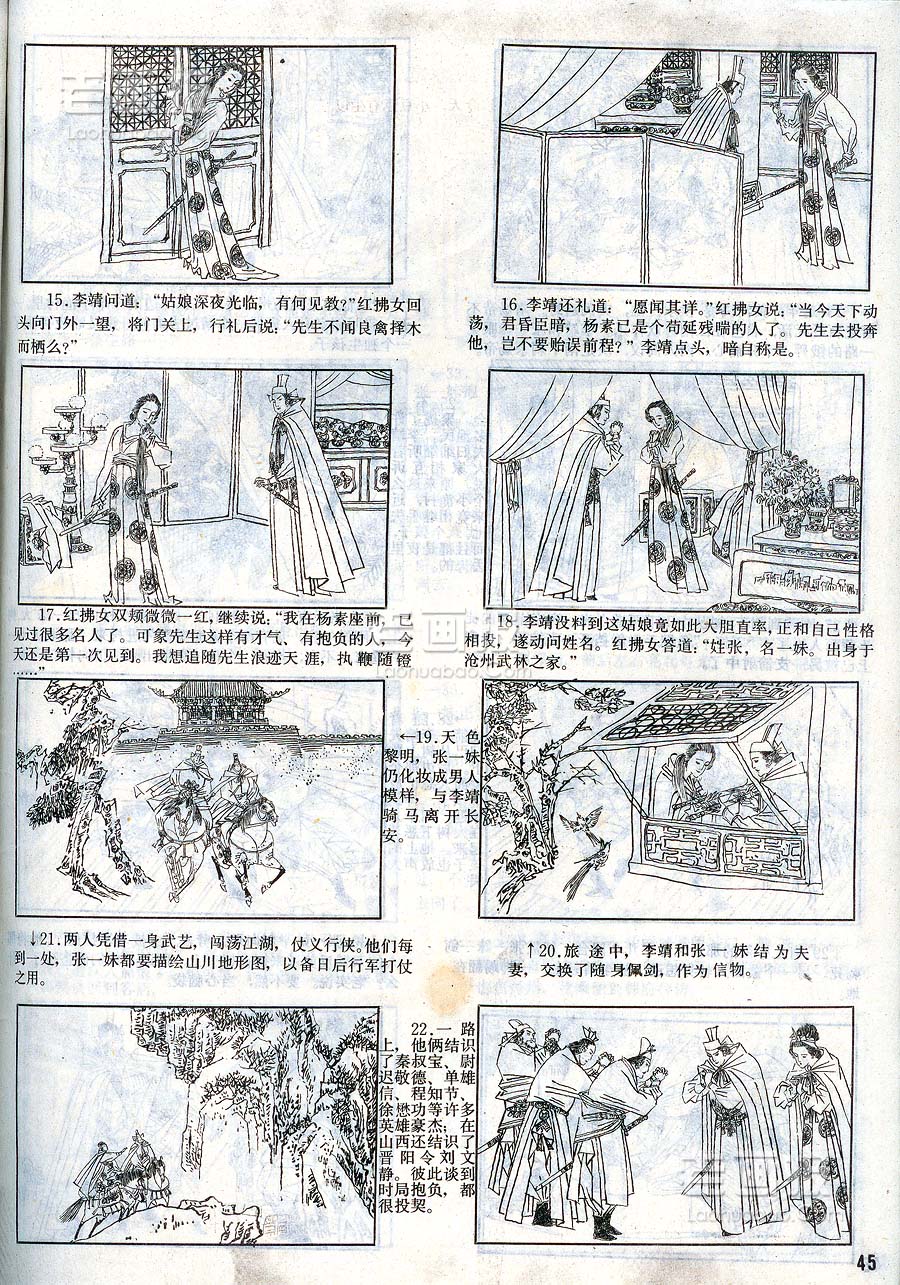 15.李靖问道：“姑娘深夜光临，有何见教？”红拂女回
头向门外一望，将门关上，行礼后说：“先生不闻良禽择木
而栖么？”
16.李靖还礼道：“愿闻其详。”红拂女说：“当今天下动
荡，君昏臣暗，杨素已是个苟延残喘的人了。先生去投奔
他，岂不要贻误前程？”李靖点头，暗自称是。
17.红拂女双颊微微一红，继续说，“我在杨素座前，已
见过很多名人了。可象先生这样有才气、有抱负的人，今
天还是第一次见到。我想追随先生浪迹天涯，执鞭随镫
……”
18.李靖没料到这姑娘竟如此大胆直率，正和自己性格
相投，遂动问姓名。红拂女答道：“姓张，名一妹。出身于
沧州武林之家。”
←19.天色
黎明，张一妹
仍化妆成男人
模样，与李靖
骑马离开长
安。
↑20.旅途中，李靖和张一妹结为夫
妻，交换了随身佩剑，作为信物。
↓21.两人凭借一身武艺，闯荡江湖，仗义行侠。他们每
到一处，张一妹都要描绘山川地形图，以备日后行军打仗
之用。
22.一路
上，他俩结识
了秦叔宝、尉
迟敬德、单雄
信、程知节、
徐懋功等许多
英雄豪杰；在
山西还结识了
晋阳令刘文
静。彼此谈到
时局抱负，都
很投契。
老画报
Laohuabao.com
45